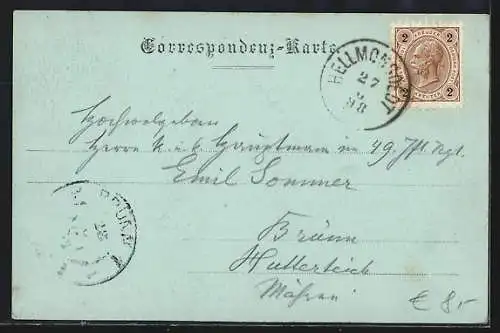 Correspondenz-Karte
HELLMONSOEDT
27
98
2 2
Hochwolgeboren
Herrn k. u. k. Hauptmann im 49. Jft. Rgt.
Emil Sommer
BRÜNN
28
Brünn
Hutterteich
Mähren
€ 8,-